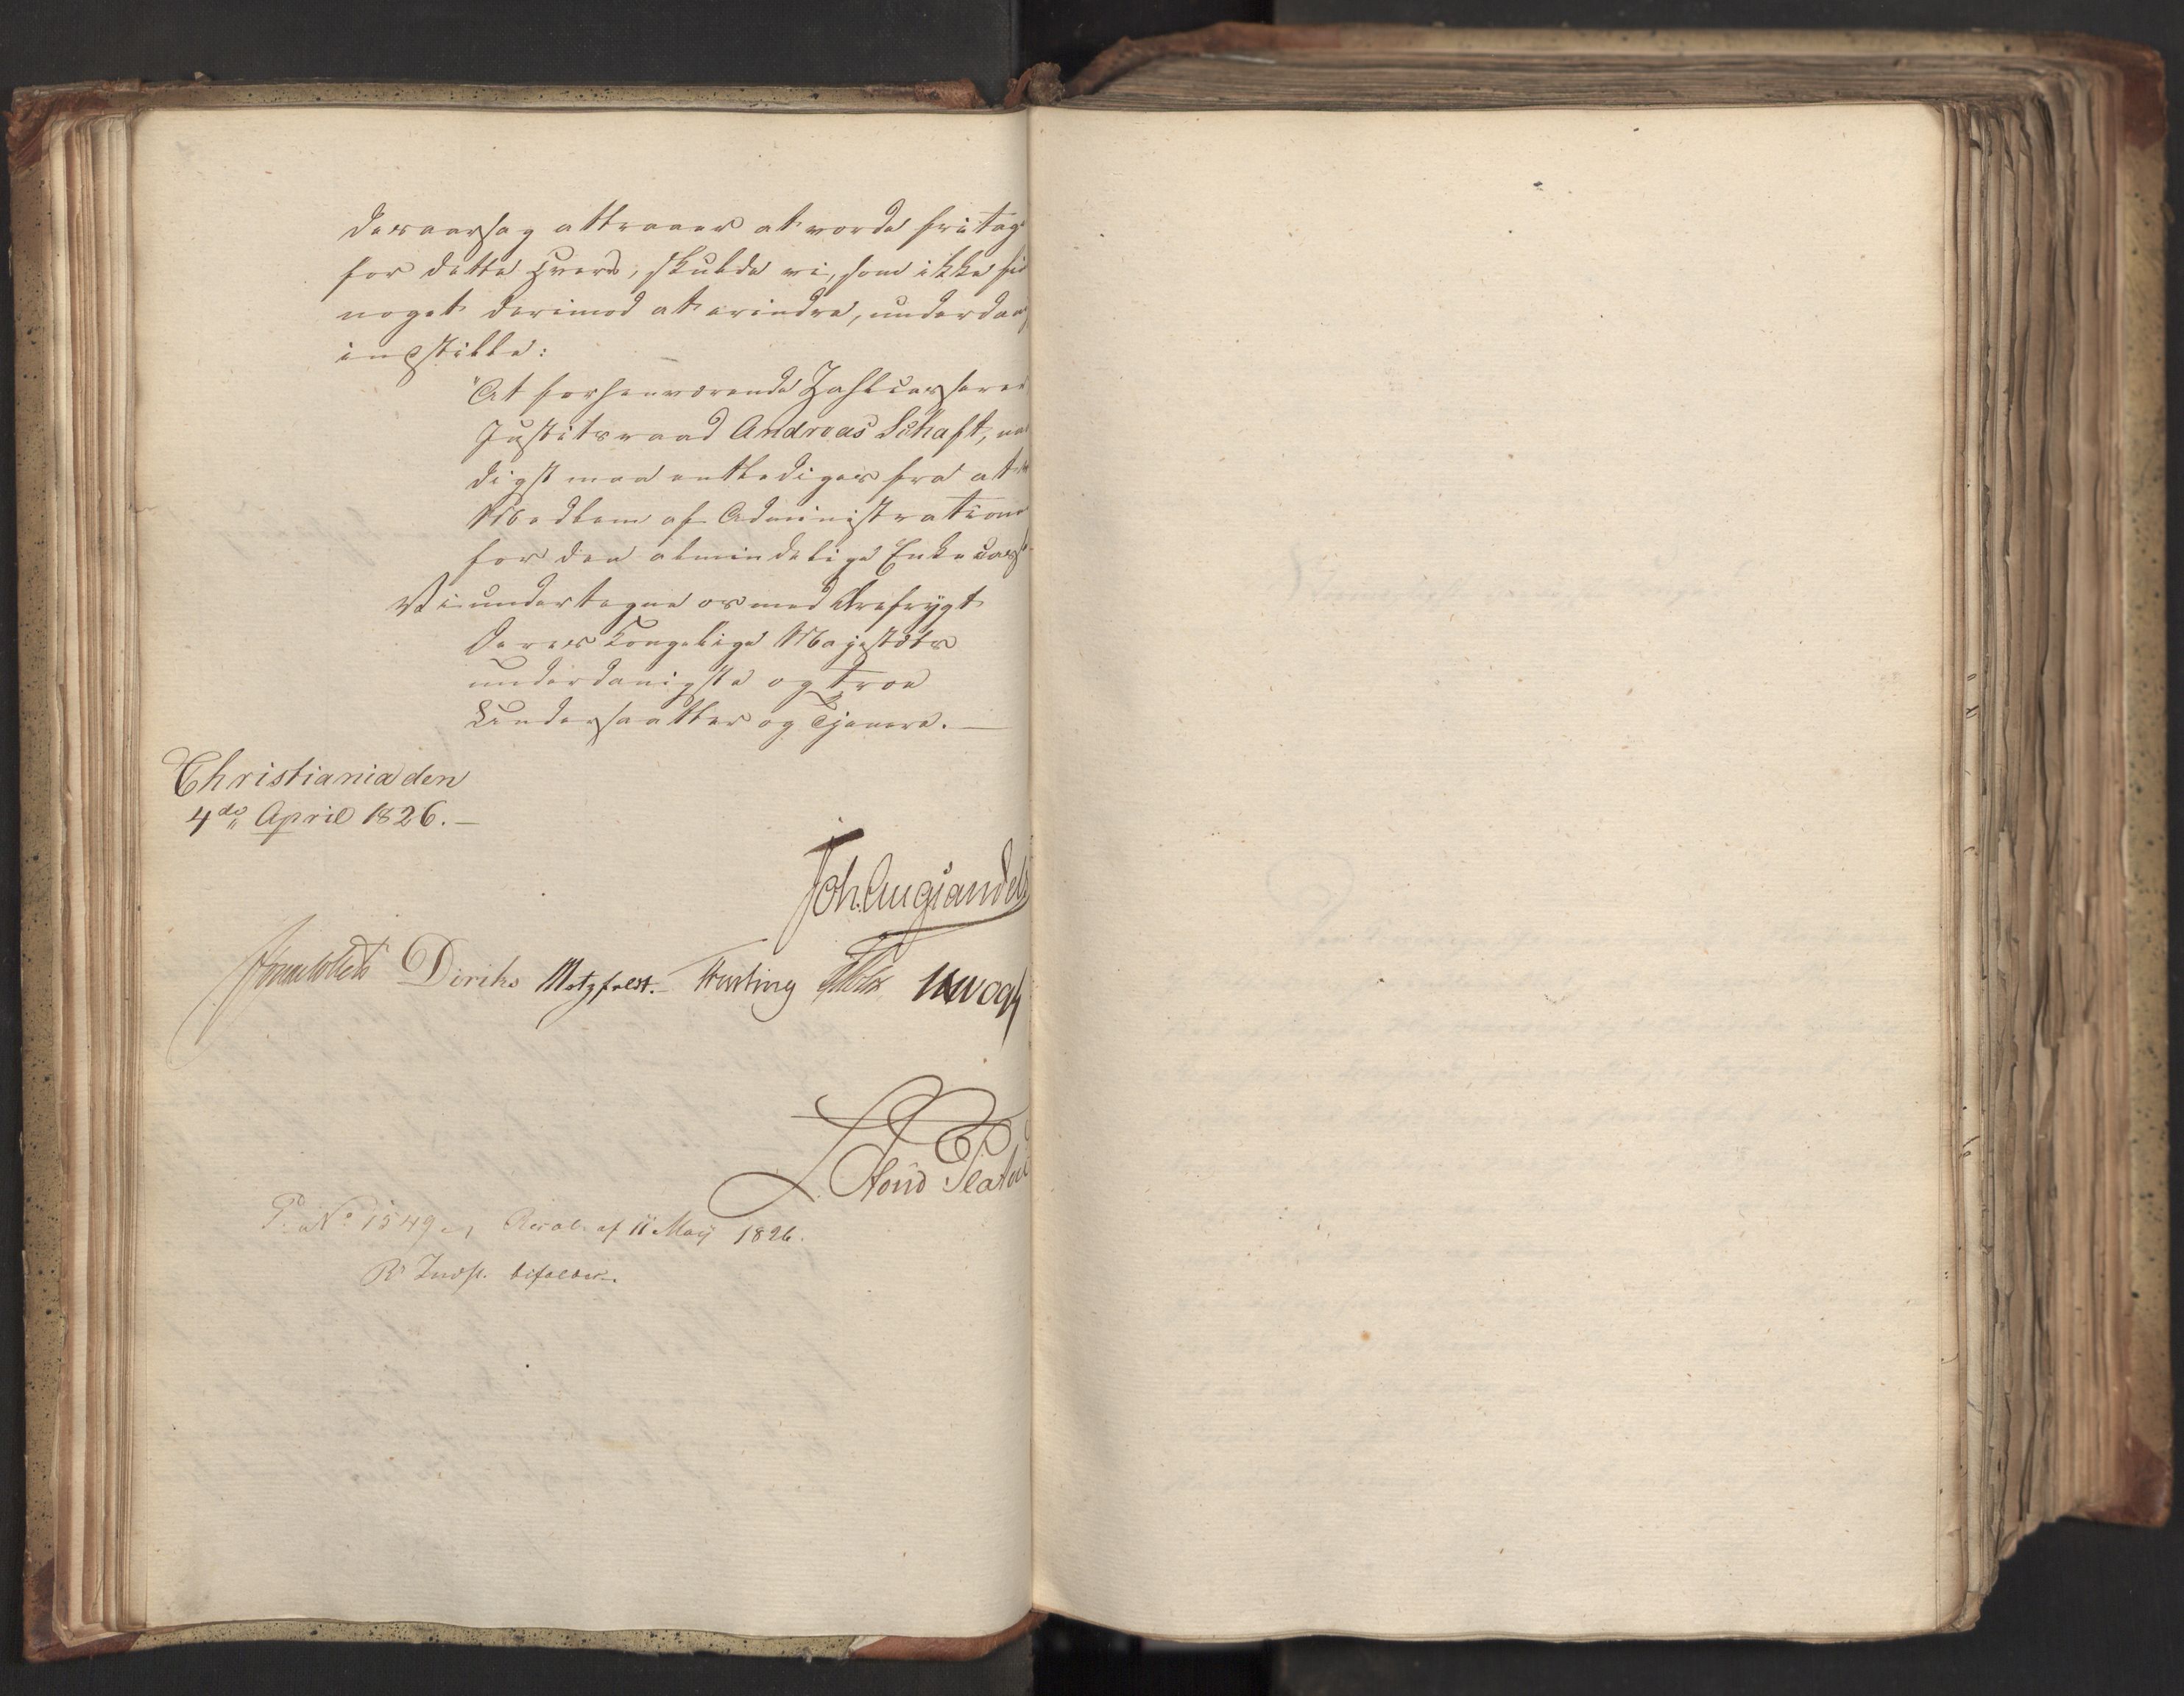 desaarsag attraaer at vorde fritag
for dette Hverv, skulde vi, som ikke fi
noget derimod at erindre, underdan
indstille:
"At forhenværende Zahlcasserer
Justitsraad Andreas Schaft, naa
digst maa entlediges fra at
Medlem af Administratione
for den almindelige Enkecas
Vi undertegne os med Ærefrygt
Deres Kongelige Majestæts
underdanigste og troe
Undersaatter og Tjenere. —
Christiania den
4de April 1826. —
Joh. Aug Sandels
Sommerfeldt Diriks Motzfeldt. Fasting Vogt
Røuid Platou
P. No 1549. Resol. af 11 Maij 1826.
R Indst. bifaldes.